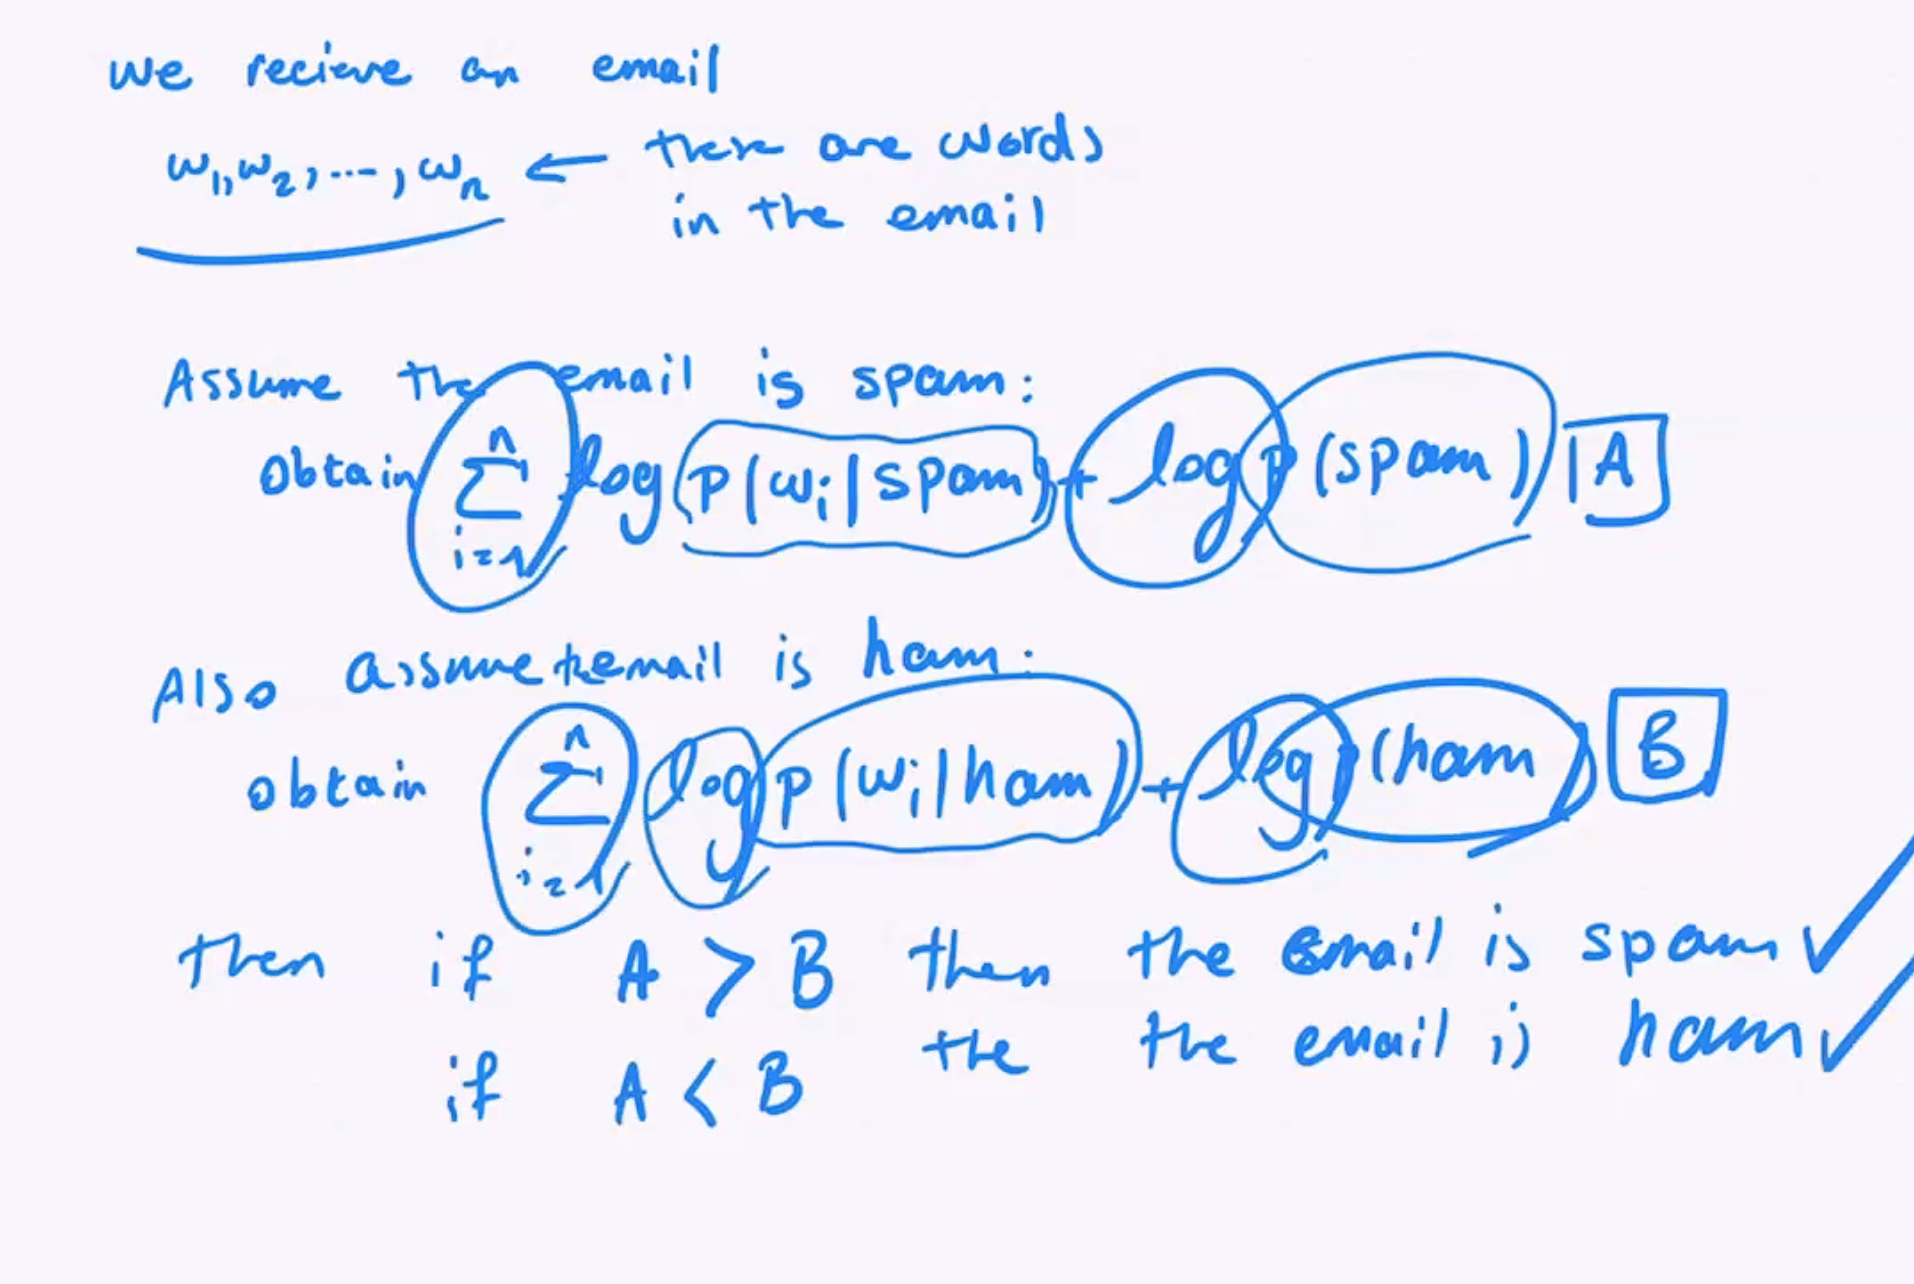 we recieve an email
w₁,w₂,...,wₙ ← these are words
in the email
Assume the email is spam:
obtain ∑ᵢ₌₁ⁿ log p(wᵢ|spam) + log p(spam) A
Also assume the email is ham:
obtain ∑ᵢ₌₁ⁿ log p(wᵢ|ham) + log p(ham) B
then if A > B then the email is spam ✓
if A < B the the email is ham ✓